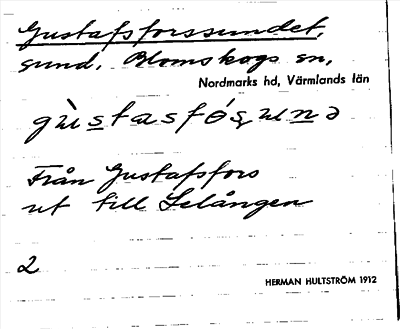 Gustafsforssundet,
sund. Blomskogs sn,
Nordmarks hd, Värmlands län
gùstasfós̨unə
Från Gustafsfors
ut till Lelången
2
HERMAN HULTSTRÖM 1912